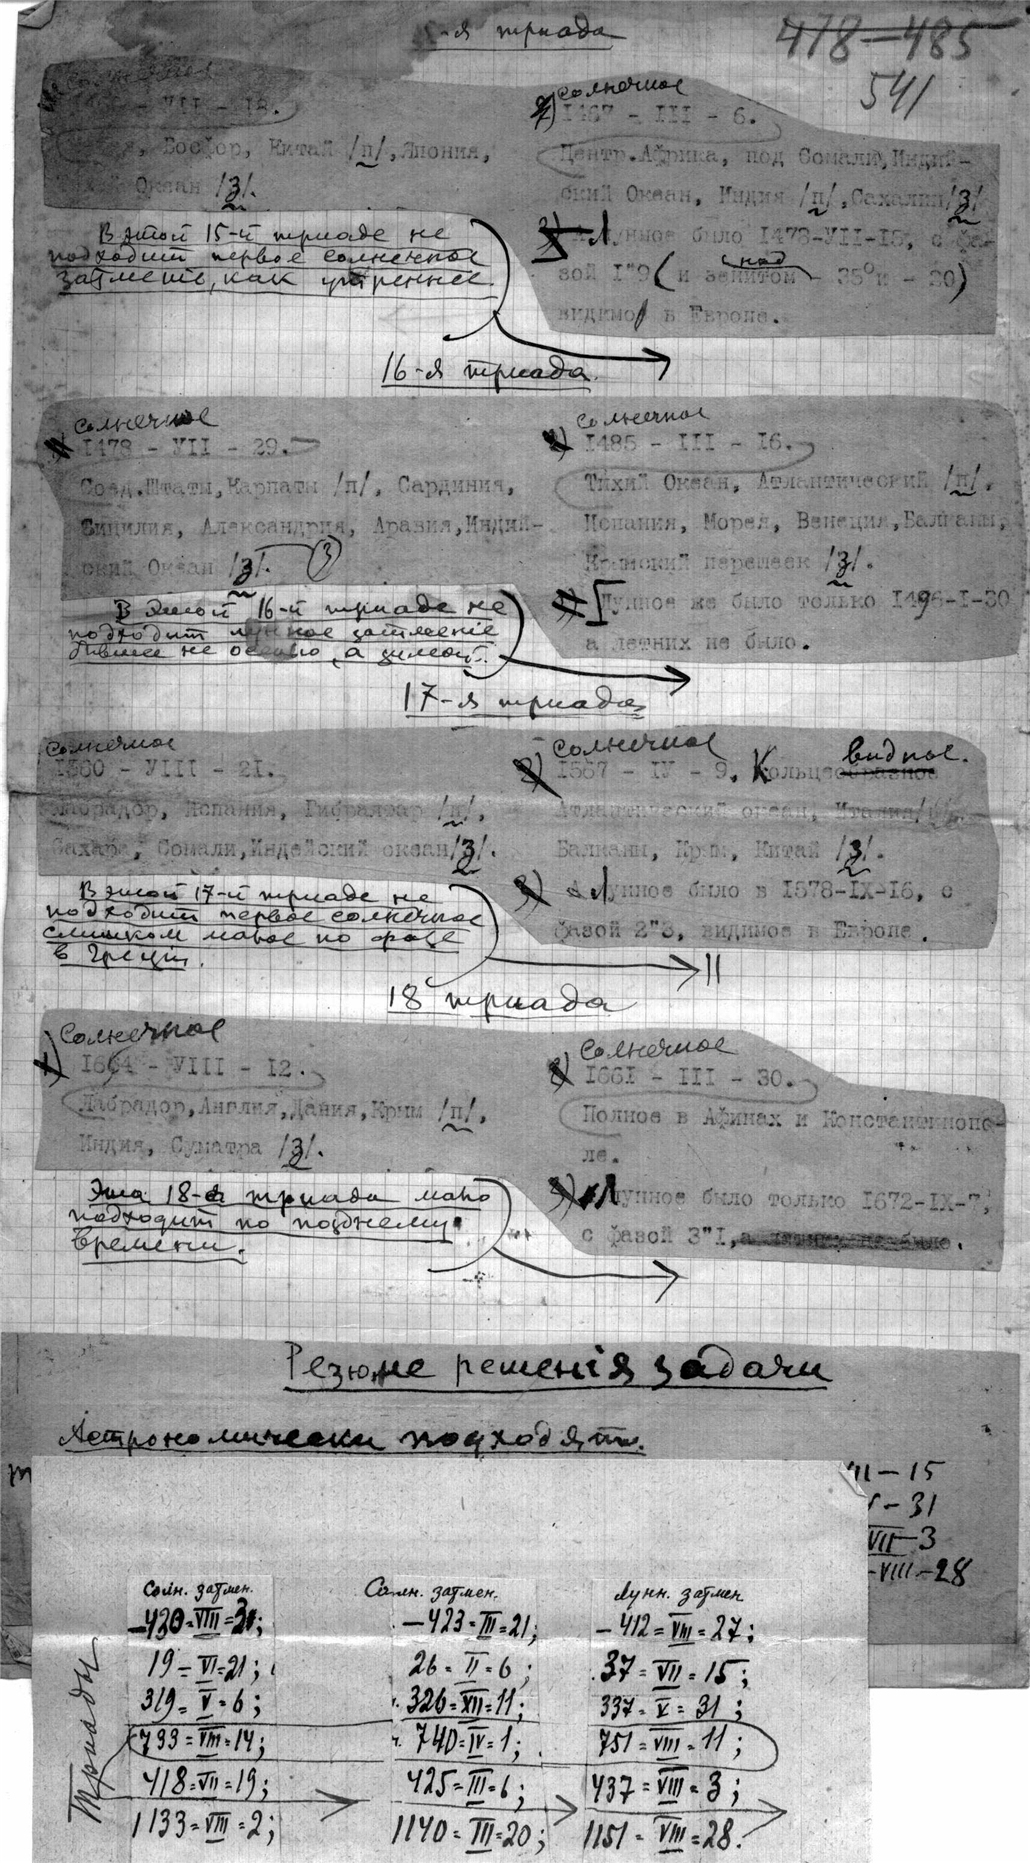 -я триада
478-485
541
Солнечное
- VII - 18.
Босфор, Китай /п/, Япония,
Океан /З/.
В этой 15-й триаде не
подходит первое солнечное
затмение, как утреннее.
2) Солнечное
1467 - III - 6.
Центр.Африка, под Сомали, Индий-
ский Океан, Индия /п/, Сахалин /З/
3) Лунное было 1478-VII-15, с фа-
зой 1"9 (и над зенитом - 35° и - 20)
видимо в Европе.
16-я триада
1) Солнечное
1478 - VII - 29.
Соед.Штаты, Карпаты /п/, Сардиния,
Сицилия, Александрия, Аравия, Индий-
ский Океан /З/. (3)
В этой 16-й триаде не
подходит лунное затмение
бывшее не осенью, а зимой.
2) Солнечное
1485 - III - 16.
Тихий Океан, Атлантический /п/,
Испания, Морея, Венеция, Балканы,
Крымский перешеек /З/.
Лунное же было только 1496-I-30
а летних не было.
17-я триада
Солнечное
1560 - VIII - 21.
Лабрадор, Испания, Гибралтар /п/,
Сахара, Сомали, Индейский океан /З/.
В этой 17-й триаде не
подходит первое солнечное
слишком малое по фазе
в Греции.
2) Солнечное
1567 - IУ - 9, Кольцевидное.
Атлантический океан, Италия /п/,
Балканы, Крым, Китай /З/.
3) Лунное было в 1578-IX-16, с
фазой 2"3, видимое в Европе.
18 триада
1) Солнечное
1654 - VIII - 12.
Лабрадор, Англия, Дания, Крым /п/,
Индия, Суматра /З/.
Эта 18-а триада мало
подходит по позднему
времени.
2) Солнечное
1661 - III - 30.
Полное в Афинах и Константинопо-
ле.
3) Лунное было только 1672-IX-7,
с фазой 3"1, а летних не было.
Резюме решенія задачи
Астрономически подходят.
VII - 15
V - 31
VII - 3
- VIII - 28
Триады
Солн. затмен. Солн. затмен. Лунн. затмен
-430=VIII=3; -423=III=21; -412=VIII=27;
19=VI=21; 26=II=6; 37=VII=15;
319=V=6; 326=XII=11; 337=V=31;
733=VIII=14; 740=IV=1; 751=VIII=11;
418=VII=19; 425=III=6; 437=VIII=3;
1133=VIII=2; 1140=III=20; 1151=VIII=28.